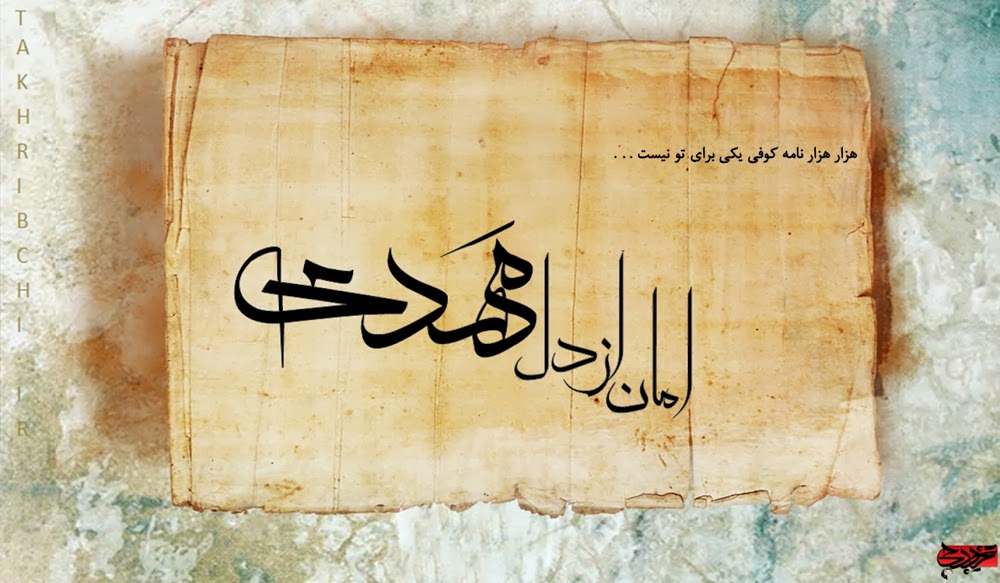 هزار هزار نامه کوفی یکی برای تو نیست ...
امان از دل مهدی
TAKHRIBCHI.IR
تخریبچی